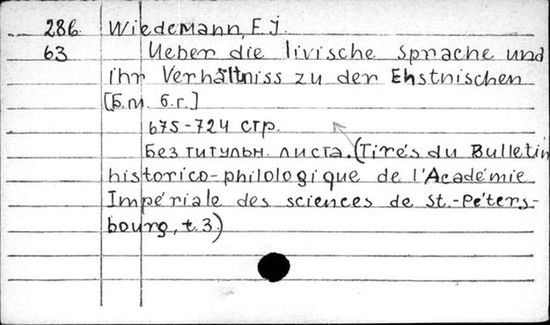 286. Wiedemann, F.J.
63 Ueber die livische Sprache und
ihr Verhältniss zu der Ehstnischen
[Б.м. б.г.]
675-724 стр.
Без титульн. листа. (Tirés du Bulletin
historico-philologique de l'Académie
Impériale des sciences de St.-Péters-
bourg, t.3.)